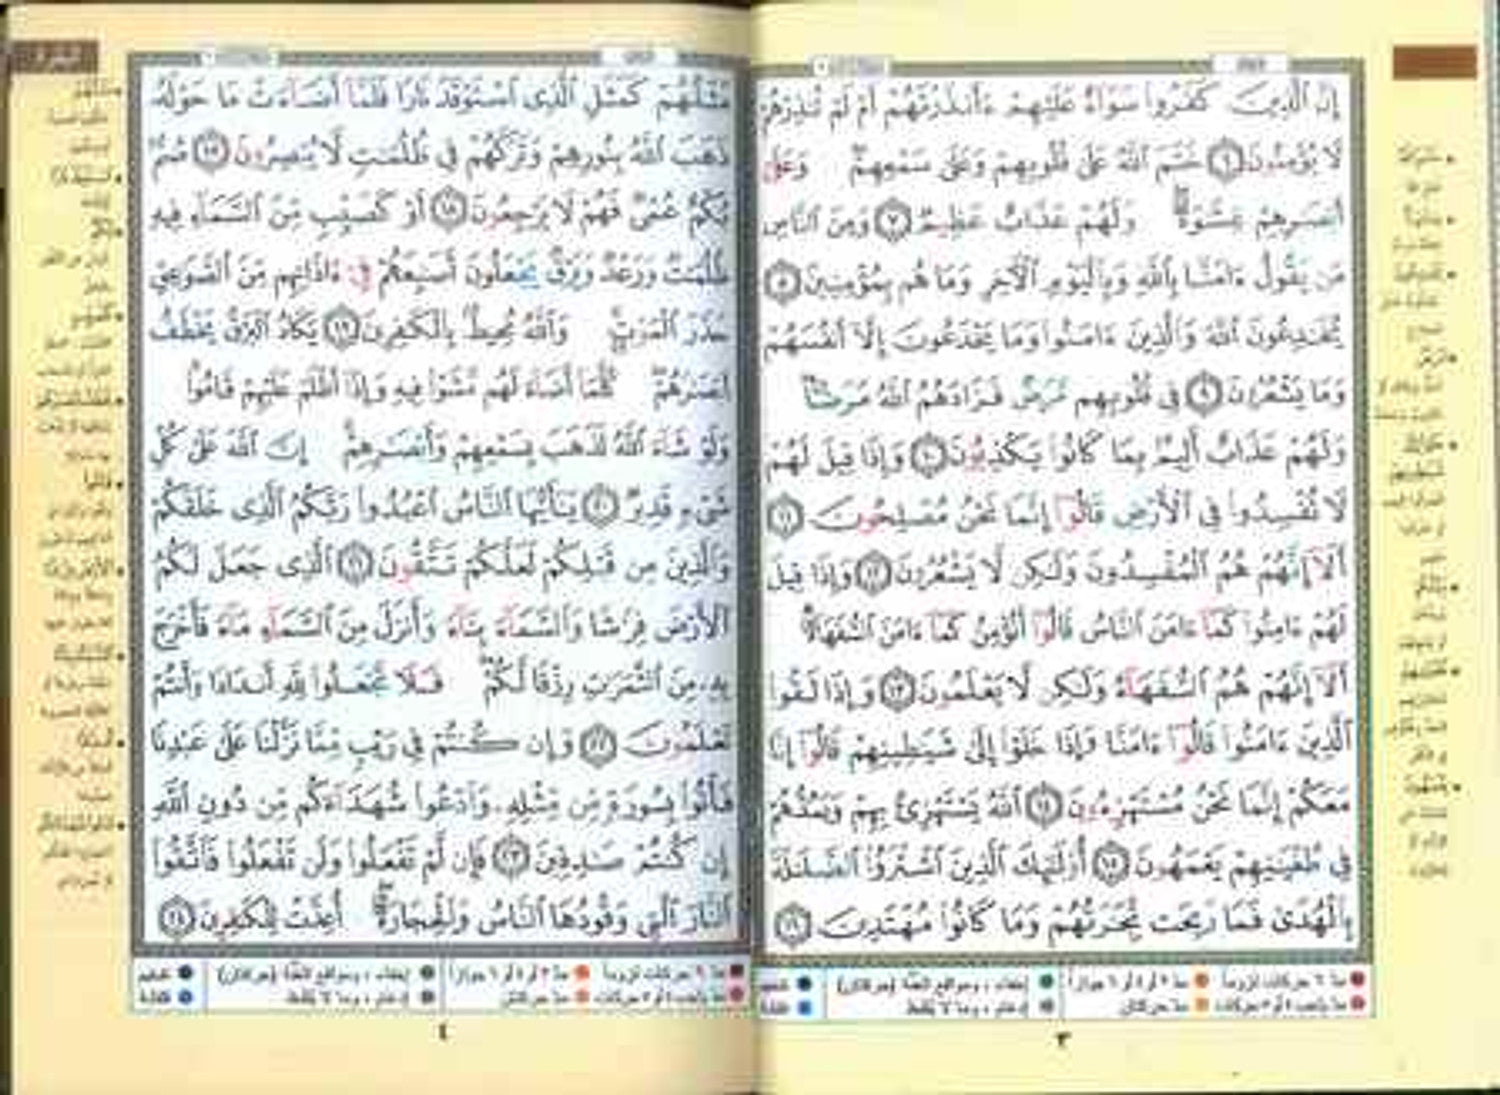 إِنَّ ٱلَّذِينَ كَفَرُوا۟ سَوَآءٌ عَلَيْهِمْ ءَأَنذَرْتَهُمْ أَمْ لَمْ تُنذِرْهُمْ
لَا يُؤْمِنُونَ ٦ خَتَمَ ٱللَّهُ عَلَىٰ قُلُوبِهِمْ وَعَلَىٰ سَمْعِهِمْ وَعَلَىٰ
أَبْصَٰرِهِمْ غِشَٰوَةٌ وَلَهُمْ عَذَابٌ عَظِيمٌ ٧ وَمِنَ ٱلنَّاسِ
مَن يَقُولُ ءَامَنَّا بِٱللَّهِ وَبِٱلْيَوْمِ ٱلْءَاخِرِ وَمَا هُم بِمُؤْمِنِينَ ٨
يُخَٰدِعُونَ ٱللَّهَ وَٱلَّذِينَ ءَامَنُوا۟ وَمَا يَخْدَعُونَ إِلَّآ أَنفُسَهُمْ
وَمَا يَشْعُرُونَ ٩ فِى قُلُوبِهِم مَّرَضٌ فَزَادَهُمُ ٱللَّهُ مَرَضًا
وَلَهُمْ عَذَابٌ أَلِيمٌۢ بِمَا كَانُوا۟ يَكْذِبُونَ ١٠ وَإِذَا قِيلَ لَهُمْ
لَا تُفْسِدُوا۟ فِى ٱلْأَرْضِ قَالُوٓا۟ إِنَّمَا نَحْنُ مُصْلِحُونَ ١١
أَلَآ إِنَّهُمْ هُمُ ٱلْمُفْسِدُونَ وَلَٰكِن لَّا يَشْعُرُونَ ١٢ وَإِذَا قِيلَ
لَهُمْ ءَامِنُوا۟ كَمَآ ءَامَنَ ٱلنَّاسُ قَالُوٓا۟ أَنُؤْمِنُ كَمَآ ءَامَنَ ٱلسُّفَهَآءُ
أَلَآ إِنَّهُمْ هُمُ ٱلسُّفَهَآءُ وَلَٰكِن لَّا يَعْلَمُونَ ١٣ وَإِذَا لَقُوا۟
ٱلَّذِينَ ءَامَنُوا۟ قَالُوٓا۟ ءَامَنَّا وَإِذَا خَلَوْا۟ إِلَىٰ شَيَٰطِينِهِمْ قَالُوٓا۟ إِنَّا
مَعَكُمْ إِنَّمَا نَحْنُ مُسْتَهْزِءُونَ ١٤ ٱللَّهُ يَسْتَهْزِئُ بِهِمْ وَيَمُدُّهُمْ
فِى طُغْيَٰنِهِمْ يَعْمَهُونَ ١٥ أُو۟لَٰٓئِكَ ٱلَّذِينَ ٱشْتَرَوُا۟ ٱلضَّلَٰلَةَ
بِٱلْهُدَىٰ فَمَا رَبِحَت تِّجَٰرَتُهُمْ وَمَا كَانُوا۟ مُهْتَدِينَ ١٦
مدّ ٦ حركات لزوماً مدّ ٢ أو ٤ أو ٦ جوازاً إخفاء، ومواقع الغنّة (حركتان) تفخيم
مدّ واجب ٤ أو ٥ حركات مدّ حركتان إدغام، وما لا يُلفظ قلقلة
٣
مَثَلُهُمْ كَمَثَلِ ٱلَّذِى ٱسْتَوْقَدَ نَارًا فَلَمَّآ أَضَآءَتْ مَا حَوْلَهُۥ
ذَهَبَ ٱللَّهُ بِنُورِهِمْ وَتَرَكَهُمْ فِى ظُلُمَٰتٍ لَّا يُبْصِرُونَ ١٧ صُمٌّۢ
بُكْمٌ عُمْىٌ فَهُمْ لَا يَرْجِعُونَ ١٨ أَوْ كَصَيِّبٍ مِّنَ ٱلسَّمَآءِ فِيهِ
ظُلُمَٰتٌ وَرَعْدٌ وَبَرْقٌ يَجْعَلُونَ أَصَٰبِعَهُمْ فِىٓ ءَاذَانِهِم مِّنَ ٱلصَّوَٰعِقِ
حَذَرَ ٱلْمَوْتِ وَٱللَّهُ مُحِيطٌۢ بِٱلْكَٰفِرِينَ ١٩ يَكَادُ ٱلْبَرْقُ يَخْطَفُ
أَبْصَٰرَهُمْ كُلَّمَآ أَضَآءَ لَهُم مَّشَوْا۟ فِيهِ وَإِذَآ أَظْلَمَ عَلَيْهِمْ قَامُوا۟
وَلَوْ شَآءَ ٱللَّهُ لَذَهَبَ بِسَمْعِهِمْ وَأَبْصَٰرِهِمْ إِنَّ ٱللَّهَ عَلَىٰ كُلِّ
شَىْءٍ قَدِيرٌ ٢٠ يَٰٓأَيُّهَا ٱلنَّاسُ ٱعْبُدُوا۟ رَبَّكُمُ ٱلَّذِى خَلَقَكُمْ
وَٱلَّذِينَ مِن قَبْلِكُمْ لَعَلَّكُمْ تَتَّقُونَ ٢١ ٱلَّذِى جَعَلَ لَكُمُ
ٱلْأَرْضَ فِرَٰشًا وَٱلسَّمَآءَ بِنَآءً وَأَنزَلَ مِنَ ٱلسَّمَآءِ مَآءً فَأَخْرَجَ
بِهِۦ مِنَ ٱلثَّمَرَٰتِ رِزْقًا لَّكُمْ فَلَا تَجْعَلُوا۟ لِلَّهِ أَندَادًا وَأَنتُمْ
تَعْلَمُونَ ٢٢ وَإِن كُنتُمْ فِى رَيْبٍ مِّمَّا نَزَّلْنَا عَلَىٰ عَبْدِنَا
فَأْتُوا۟ بِسُورَةٍ مِّن مِّثْلِهِۦ وَٱدْعُوا۟ شُهَدَآءَكُم مِّن دُونِ ٱللَّهِ
إِن كُنتُمْ صَٰدِقِينَ ٢٣ فَإِن لَّمْ تَفْعَلُوا۟ وَلَن تَفْعَلُوا۟ فَٱتَّقُوا۟
ٱلنَّارَ ٱلَّتِى وَقُودُهَا ٱلنَّاسُ وَٱلْحِجَارَةُ أُعِدَّتْ لِلْكَٰفِرِينَ ٢٤
مدّ ٦ حركات لزوماً مدّ ٢ أو ٤ أو ٦ جوازاً إخفاء، ومواقع الغنّة (حركتان) تفخيم
مدّ واجب ٤ أو ٥ حركات مدّ حركتان إدغام، وما لا يُلفظ قلقلة
٤